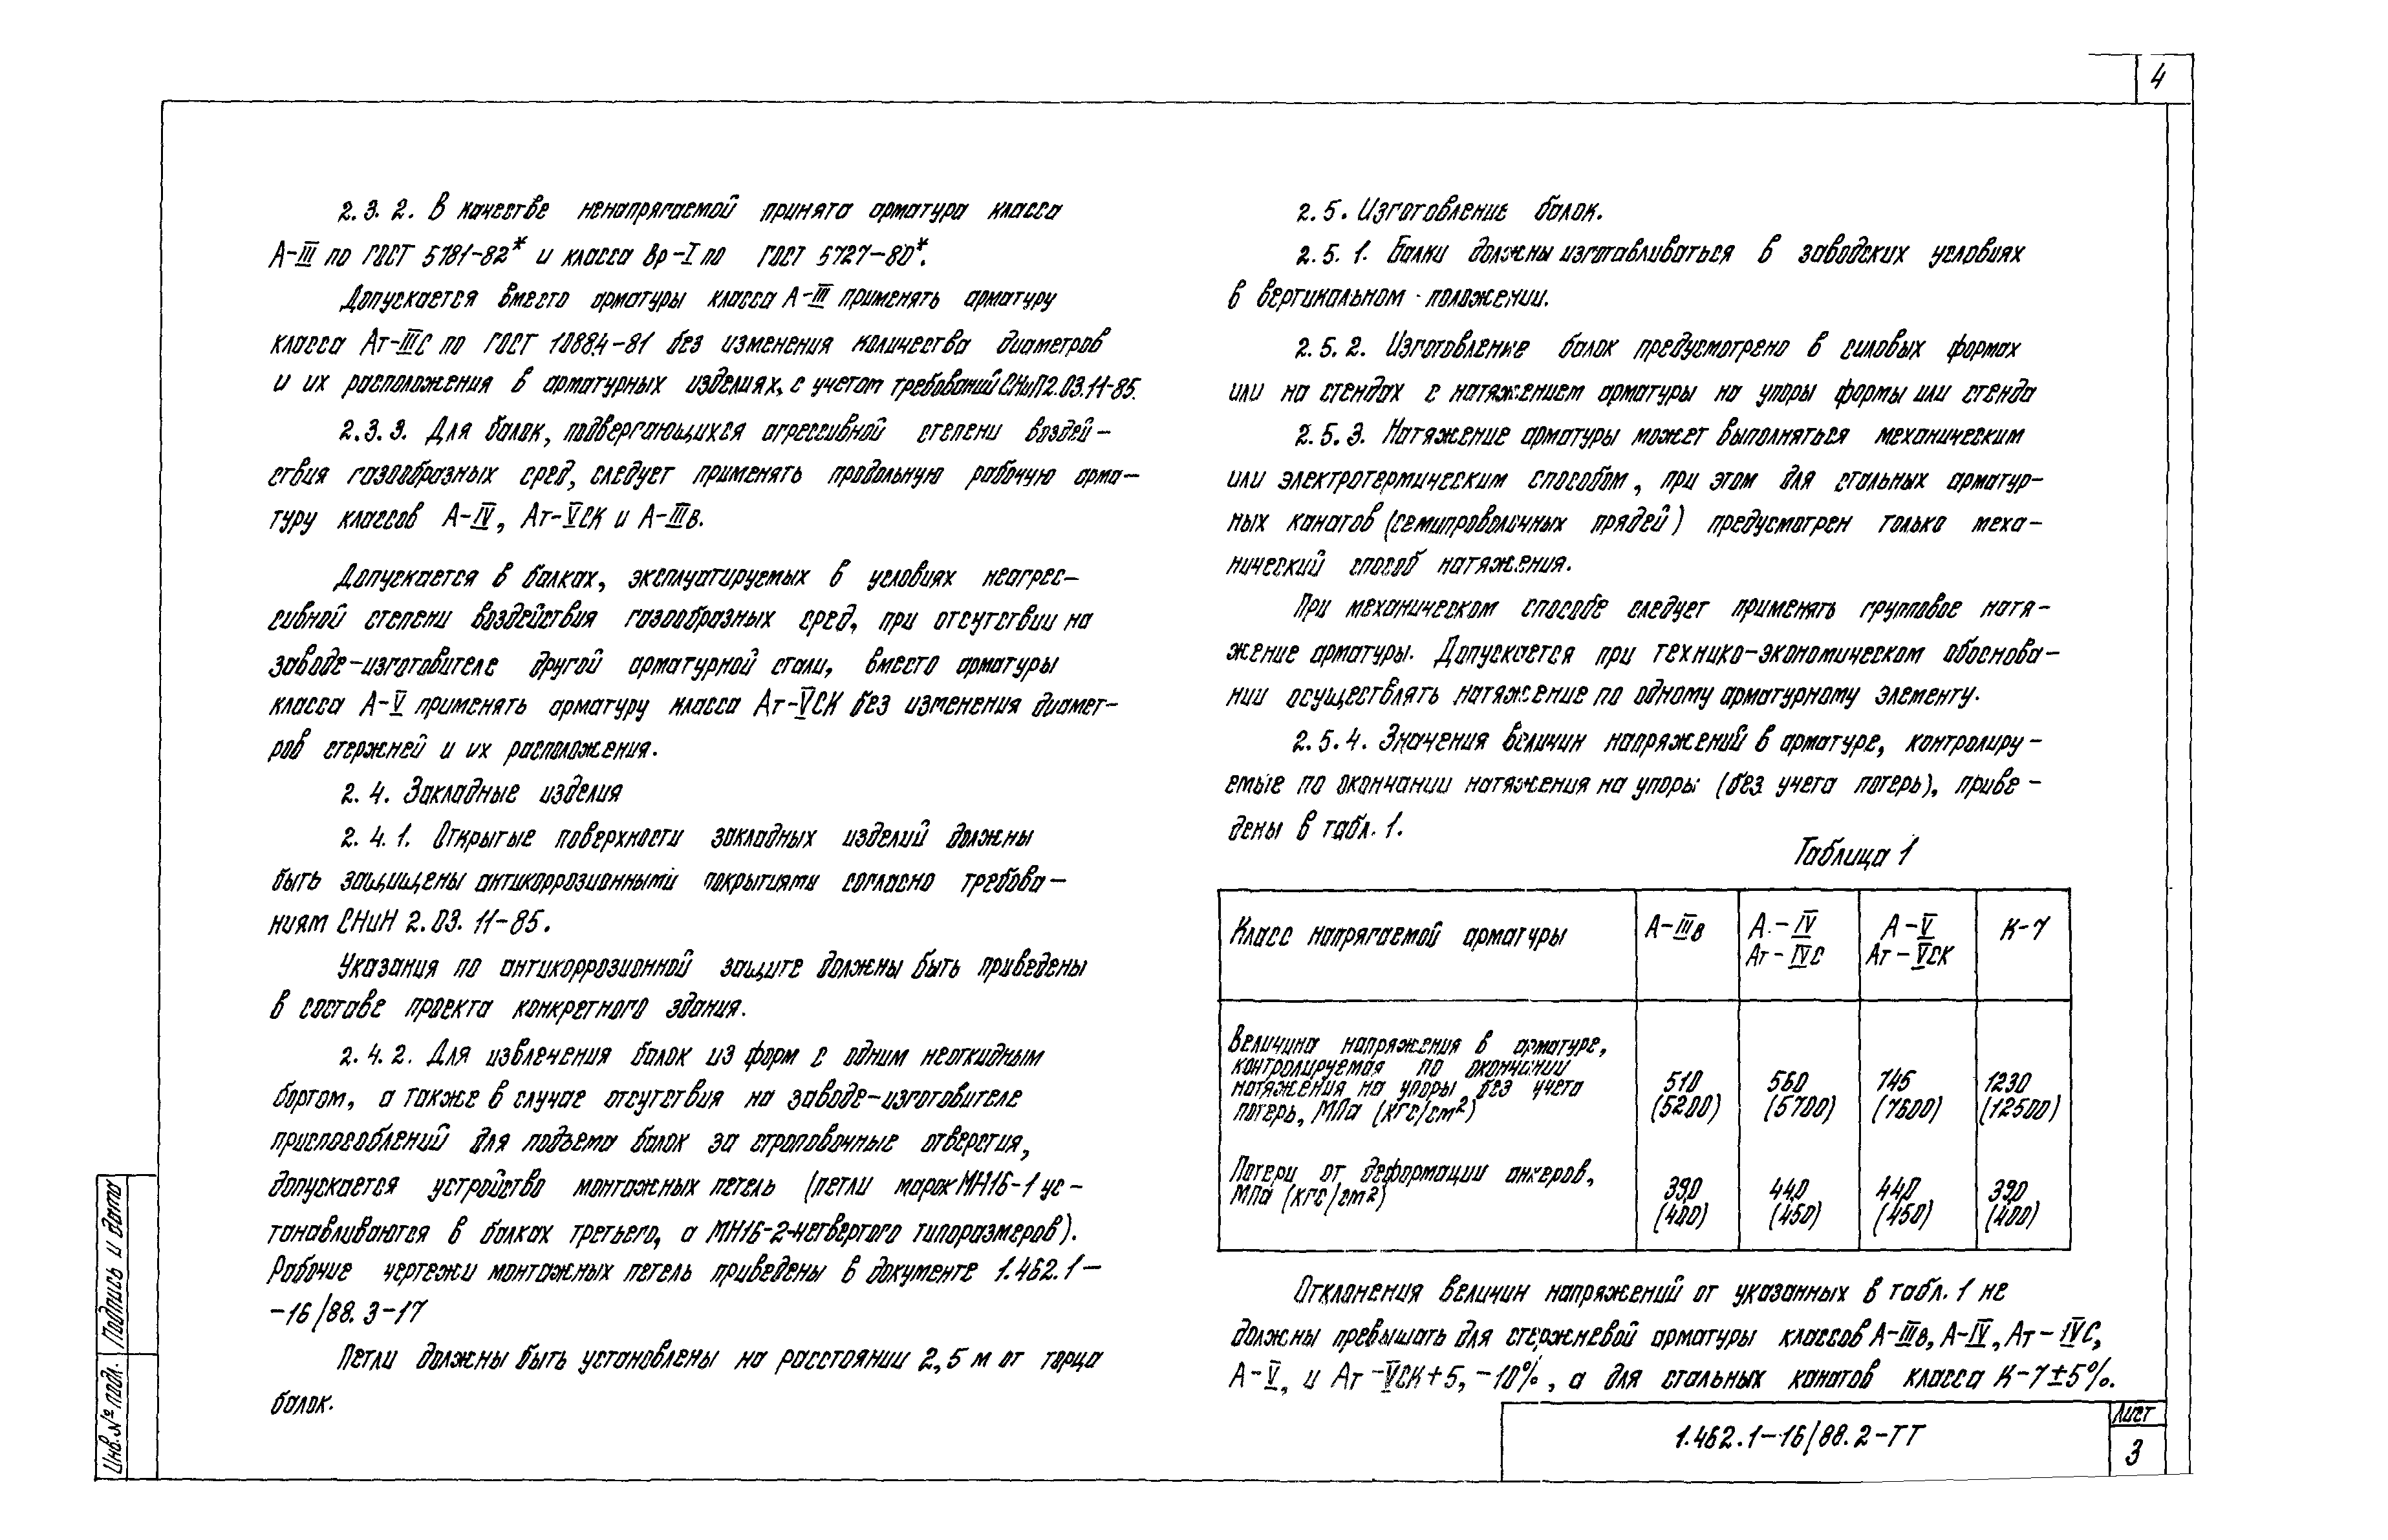 4
2.3.2. В качестве ненапрягаемой принята арматура класса
А-III по ГОСТ 5781-82* и класса Вр-I по ГОСТ 6727-80*.
Допускается вместо арматуры класса А-III применять арматуру
класса Ат-IIIС по ГОСТ 10884-81 без изменения количества диаметров
и их расположения в арматурных изделиях, с учетом требований СНиП 2.03.11-85.
2.3.3. Для балок, подвергающихся агрессивной степени воздей-
ствия газообразных сред, следует применять продольную рабочую арма-
туру классов А-IV, Ат-VСК и А-IIIв.
Допускается в балках, эксплуатируемых в условиях неагрес-
сивной степени воздействия газообразных сред, при отсутствии на
заводе-изготовителе другой арматурной стали, вместо арматуры
класса А-V применять арматуру класса Ат-VСК без изменения диамет-
ров стержней и их расположения.
2.4. Закладные изделия
2.4.1. Открытые поверхности закладных изделий должны
быть защищены антикоррозионными покрытиями согласно требова-
ниям СНиН 2.03.11-85.
Указания по антикоррозионной защите должны быть приведены
в составе проекта конкретного здания.
2.4.2. Для извлечения балок из форм с одним неоткидным
бортом, а также в случае отсутствия на заводе-изготовителе
приспособлений для подъема балок за строповочные отверстия,
допускается устройство монтажных петель (петли марок МН16-1 ус-
танавливаются в балках третьего, а МН16-2-четвертого типоразмеров).
Рабочие чертежи монтажных петель приведены в документе 1.462.1-
-16/88.3-17
Петли должны быть установлены на расстоянии 2,5 м от торца
балок.
2.5. Изготовление балок.
2.5.1. Балки должны изготавливаться в заводских условиях
в вертикальном положении.
2.5.2. Изготовление балок предусмотрено в силовых формах
или на стендах с натяжением арматуры на упоры формы или стенда
2.5.3. Натяжение арматуры может выполняться механическим
или электротермическим способом, при этом для стальных арматур-
ных канатов (семипроволочных прядей) предусмотрен только меха-
нический способ натяжения.
При механическом способе следует применять групповое натя-
жение арматуры. Допускается при технико-экономическом обоснова-
нии осуществлять натяжение по одному арматурному элементу.
2.5.4. Значения величин напряжений в арматуре, контролиру-
емые по окончании натяжения на упоры (без учета потерь), приве-
дены в табл. 1.
Таблица 1
Класс напрягаемой арматуры А-IIIв А-IV Ат-IVС А-V Ат-VСК К-7
Величина напряжения в арматуре,
контролируемая по окончании
натяжения на упоры без учета 510 560 745 1230
потерь, МПа (кгс/см²) (5200) (5700) (7600) (12500)
Потери от деформации анкеров,
МПа (кгс/см²) 390 440 440 390
(400) (450) (450) (400)
Отклонения величин напряжений от указанных в табл. 1 не
должны превышать для стержневой арматуры классов А-IIIв, А-IV, Ат-IVС,
А-V, и Ат-VСК+5, -10%, а для стальных канатов класса К-7±5%.
1.462.1-16/88.2-ТТ
Лист
3
Инв. № подл.
Подпись и дата